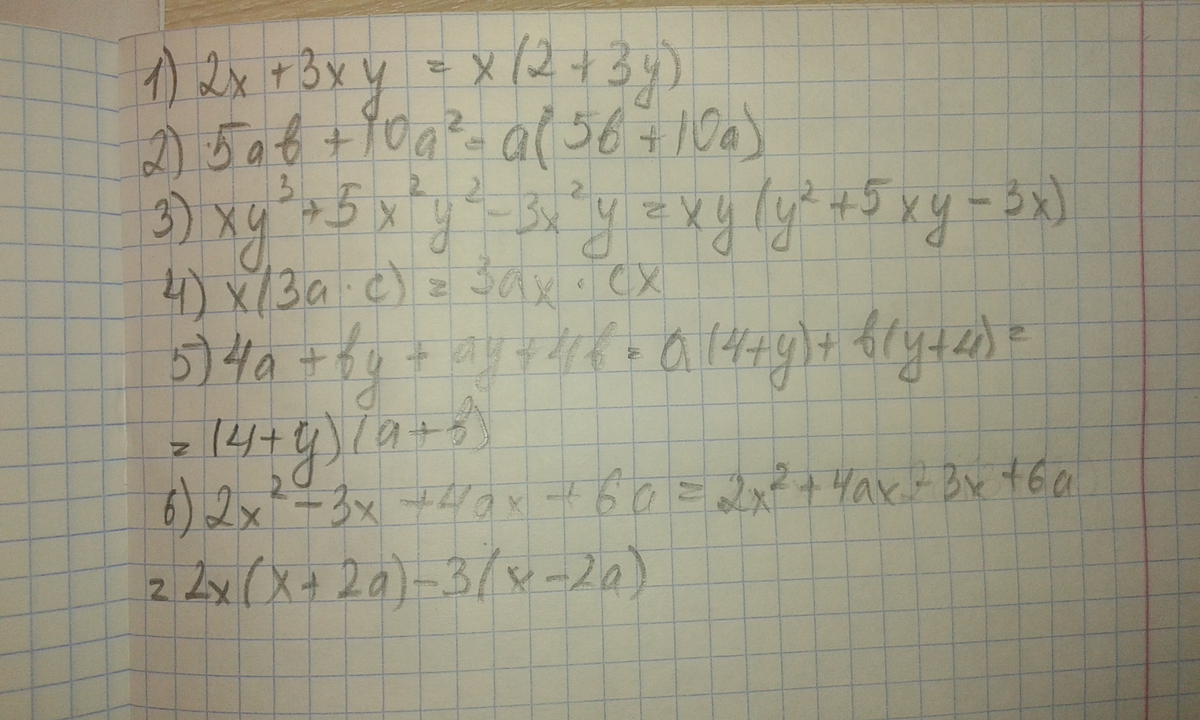 1) 2x + 3xy = x(2 + 3y)
2) 5ab + 10a² = a(5b + 10a)
3) xy³ + 5x²y² - 3x²y = xy(y² + 5xy - 3x)
4) x(3a · c) = 3ax · cx
5) 4a + by + ay + 4b = a(4+y) + b(y+4) =
= (4+y)(a+b)
6) 2x² - 3x + 4ax + 6a = 2x² + 4ax - 3x + 6a
= 2x(x + 2a) - 3(x - 2a)